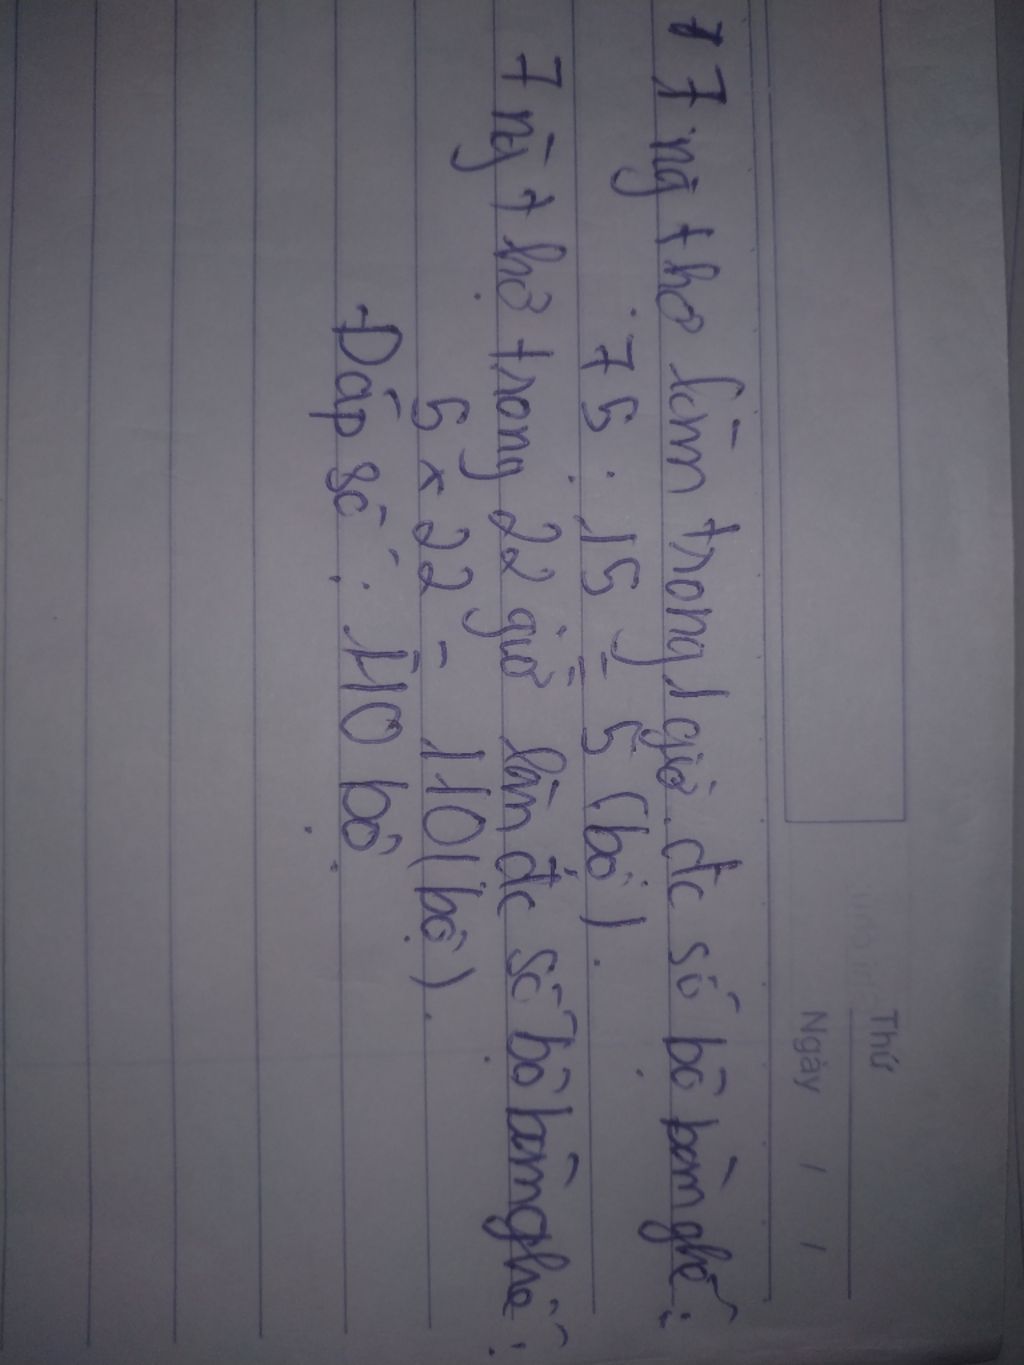 Thứ
Ngày / /
7 ng thợ làm trong 1 giờ đc số bộ bàn ghế:
75 : 15 = 5 (bộ).
7 ng thợ trong 22 giờ làm đc số bộ bàn ghế:
5 x 22 = 110 (bộ).
Đáp số: 110 bộ